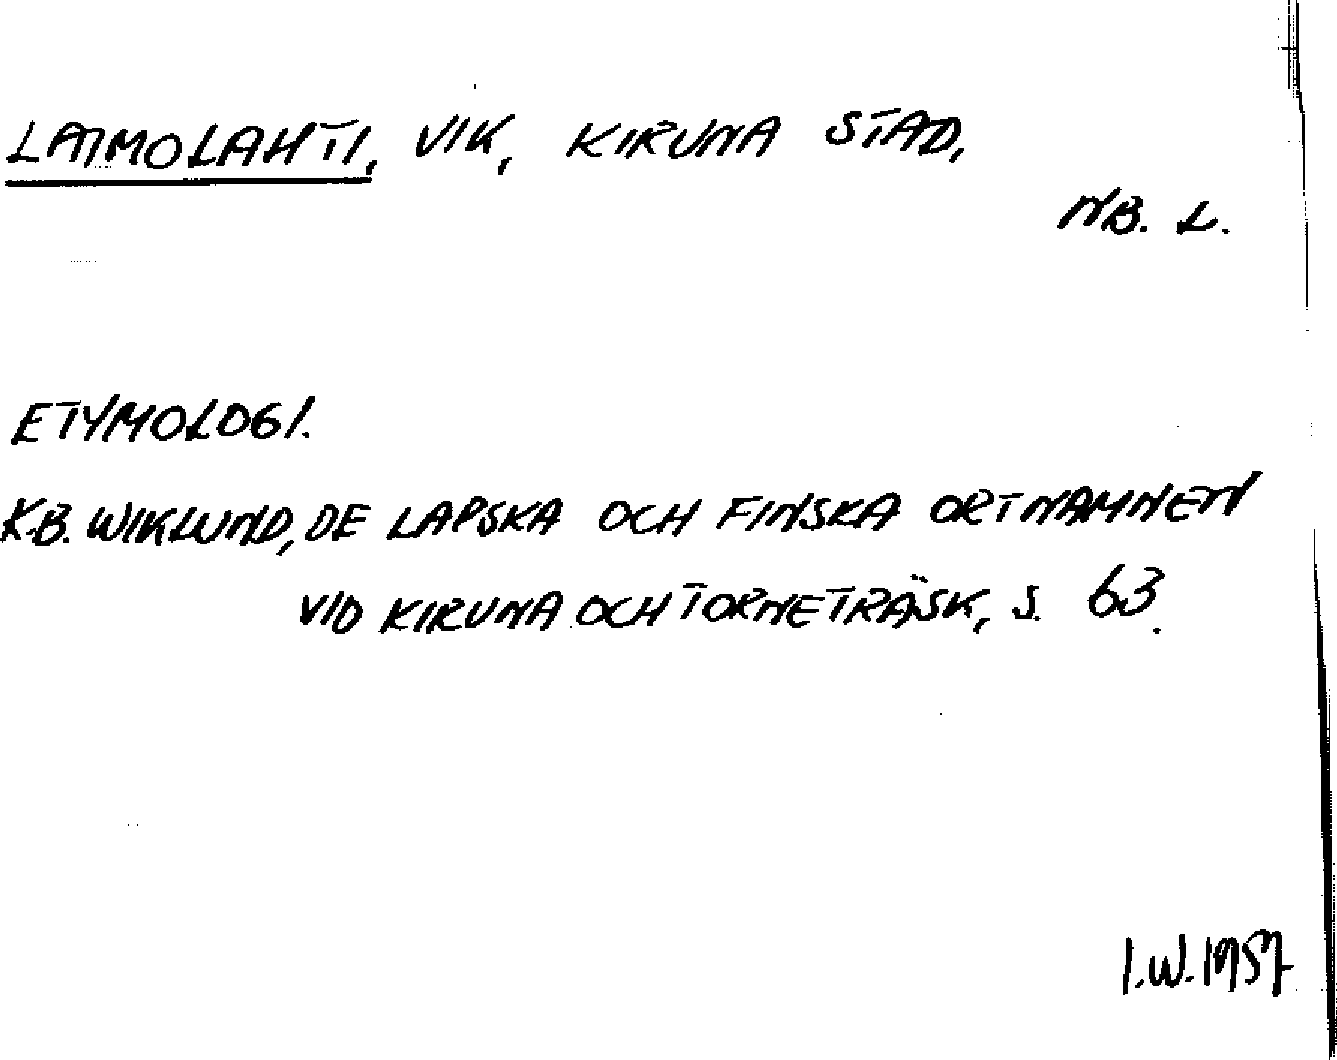 LATMOLAHTI, VIK, KIRUNA STAD,
NB. L.
ETYMOLOGI.
K.B. WIKLUND, DE LAPSKA OCH FINSKA ORTNAMNEN
VID KIRUNA OCH TORNETRÄSK, S. 63.
I.W. 1957